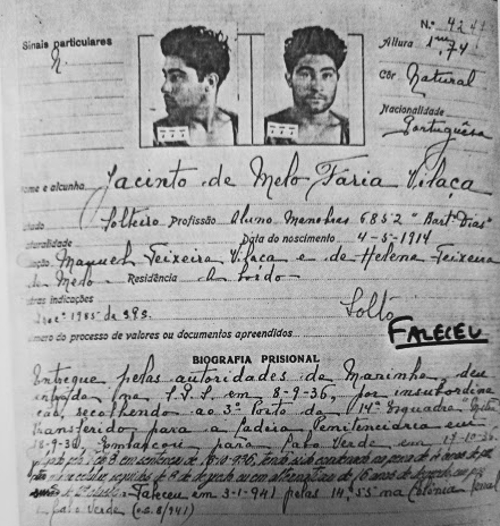 N.º 4241
Sinais particulares
Altura 1m,74
N.
Côr Natural
Nacionalidade
Portuguêsa
ome e alcunha Jacinto de Melo Faria Vilaça
stado Solteiro Profissão Aluno Manobras 6852 "Bart. Dias"
turalidade Data do nascimento 4-5-1914
iação Manuel Teixeira Vilaça e de Helena Teixeira
de Melo - Residência A bordo -
utras indicações Solto
Proc.º 1955 de S.P.S.
FALECEU
úmero do processo de valores ou documentos apreendidos
BIOGRAFIA PRISIONAL
Entregue pelas autoridades de Marinha, deu
entrada na S.P.S. em 8-9-36, por insubordina
ção, recolhendo ao 3º Posto da 14ª Esquadra
Transferido para a Cadeia Penitenciária em
18-9-36. Embarcou para Cabo Verde em 17-10-36
em sentença de tendo sido condenado na pena de anos de
seguidos de 8 de degredo ou em alternativa de 16 anos de degredo
Faleceu em 3-1-941 pelas 14,55 na Colónia Penal
de Cabo Verde (o.s. 8/941)